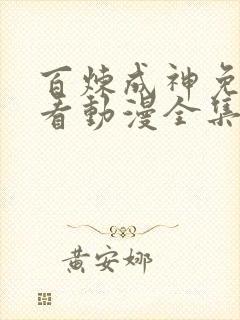 百炼成神免
看動漫全集
黄安娜